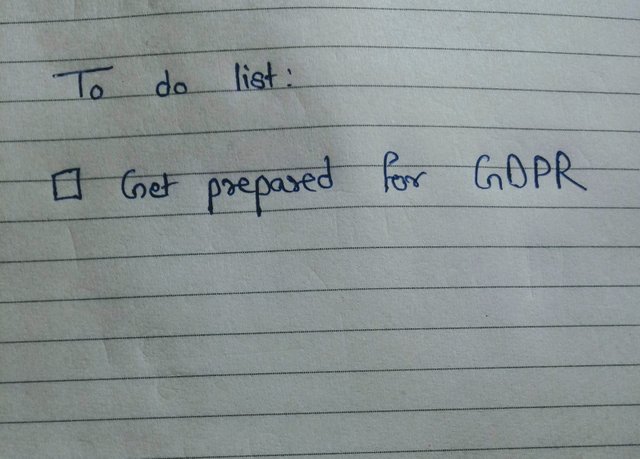 To do list:
☐ Get prepared for GDPR